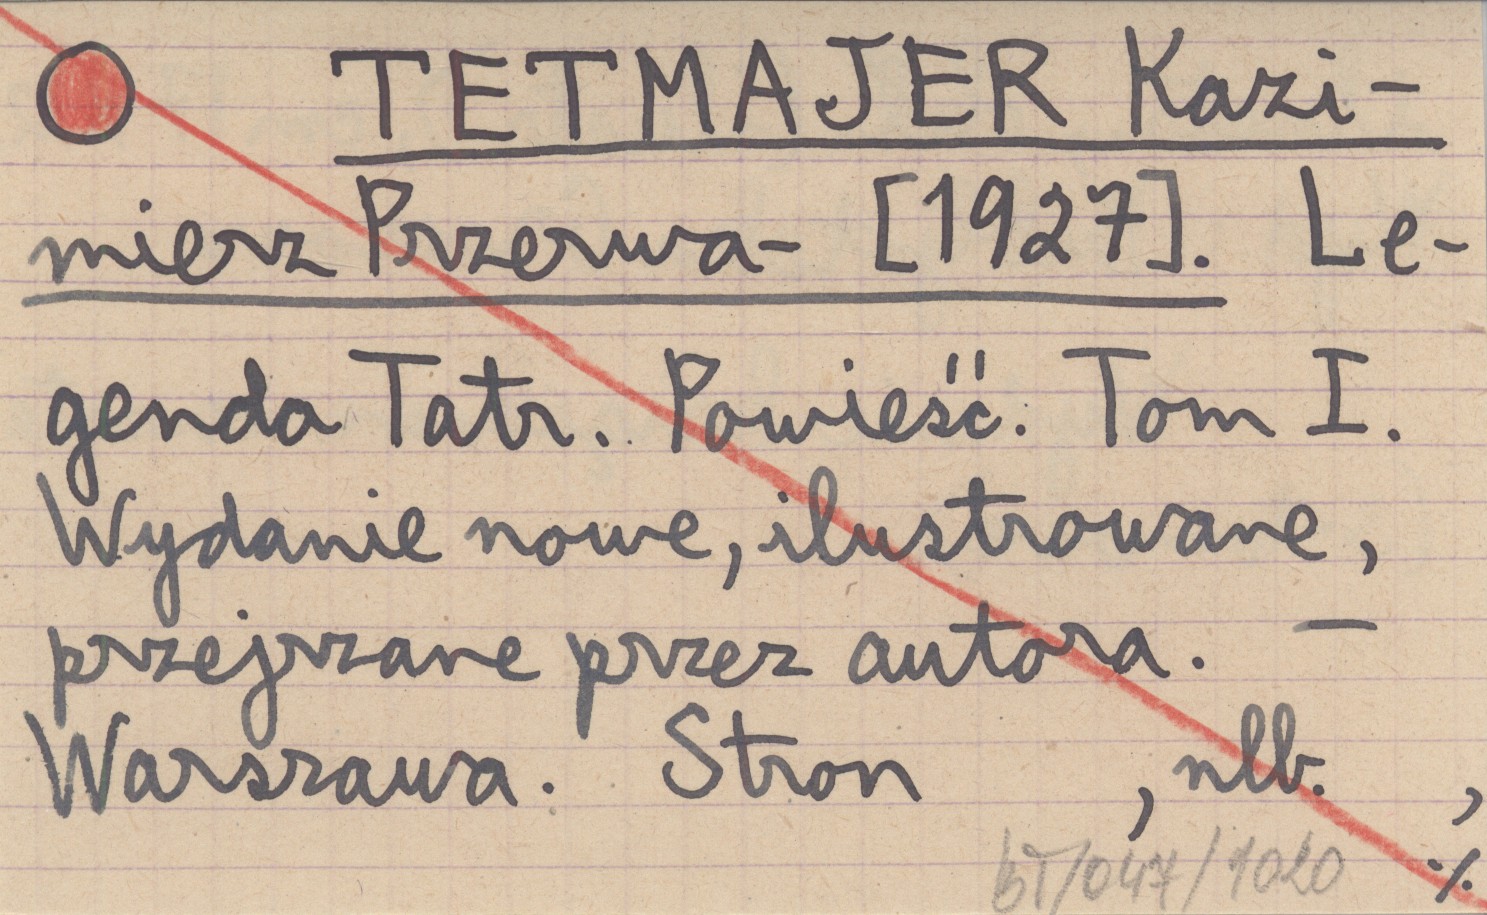 TETMAJER Kazi-
mierz Przerwa- [1927]. Le-
genda Tatr. Powieść. Tom I.
Wydanie nowe, ilustrowane,
przejrzane przez autora. —
Warszawa. Stron , nlb. ,
bT/047/1020 ./.